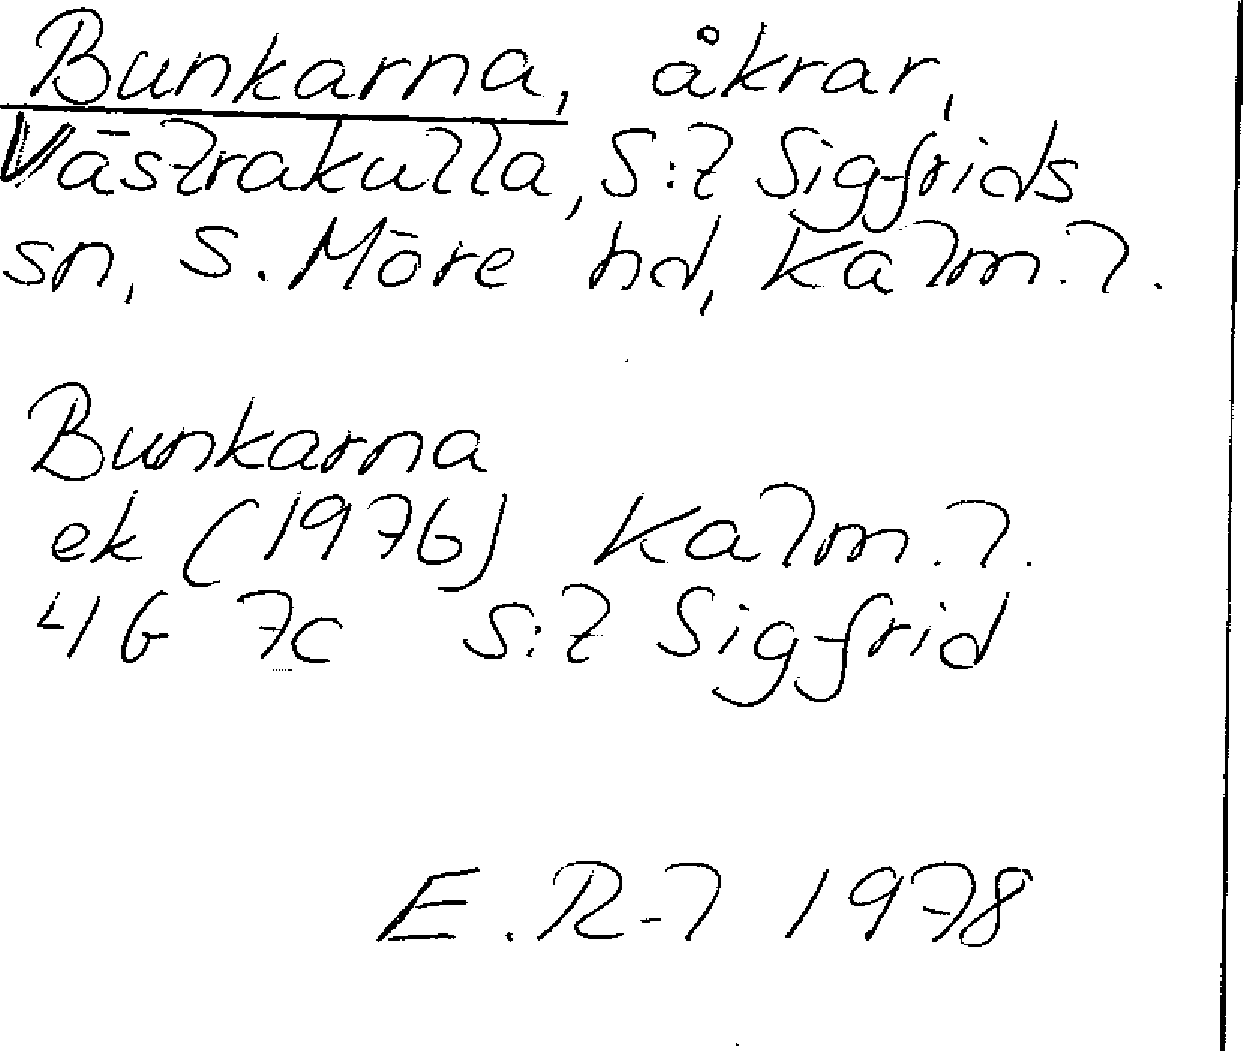 Bunkarna, åkrar,
Västrakulla, S:t Sigfrids
sn, S. Möre hd, Kalm. l.
Bunkarna
ek (1976) Kalm. l.
4G 7c S:t Sigfrid
E. R-l 1978